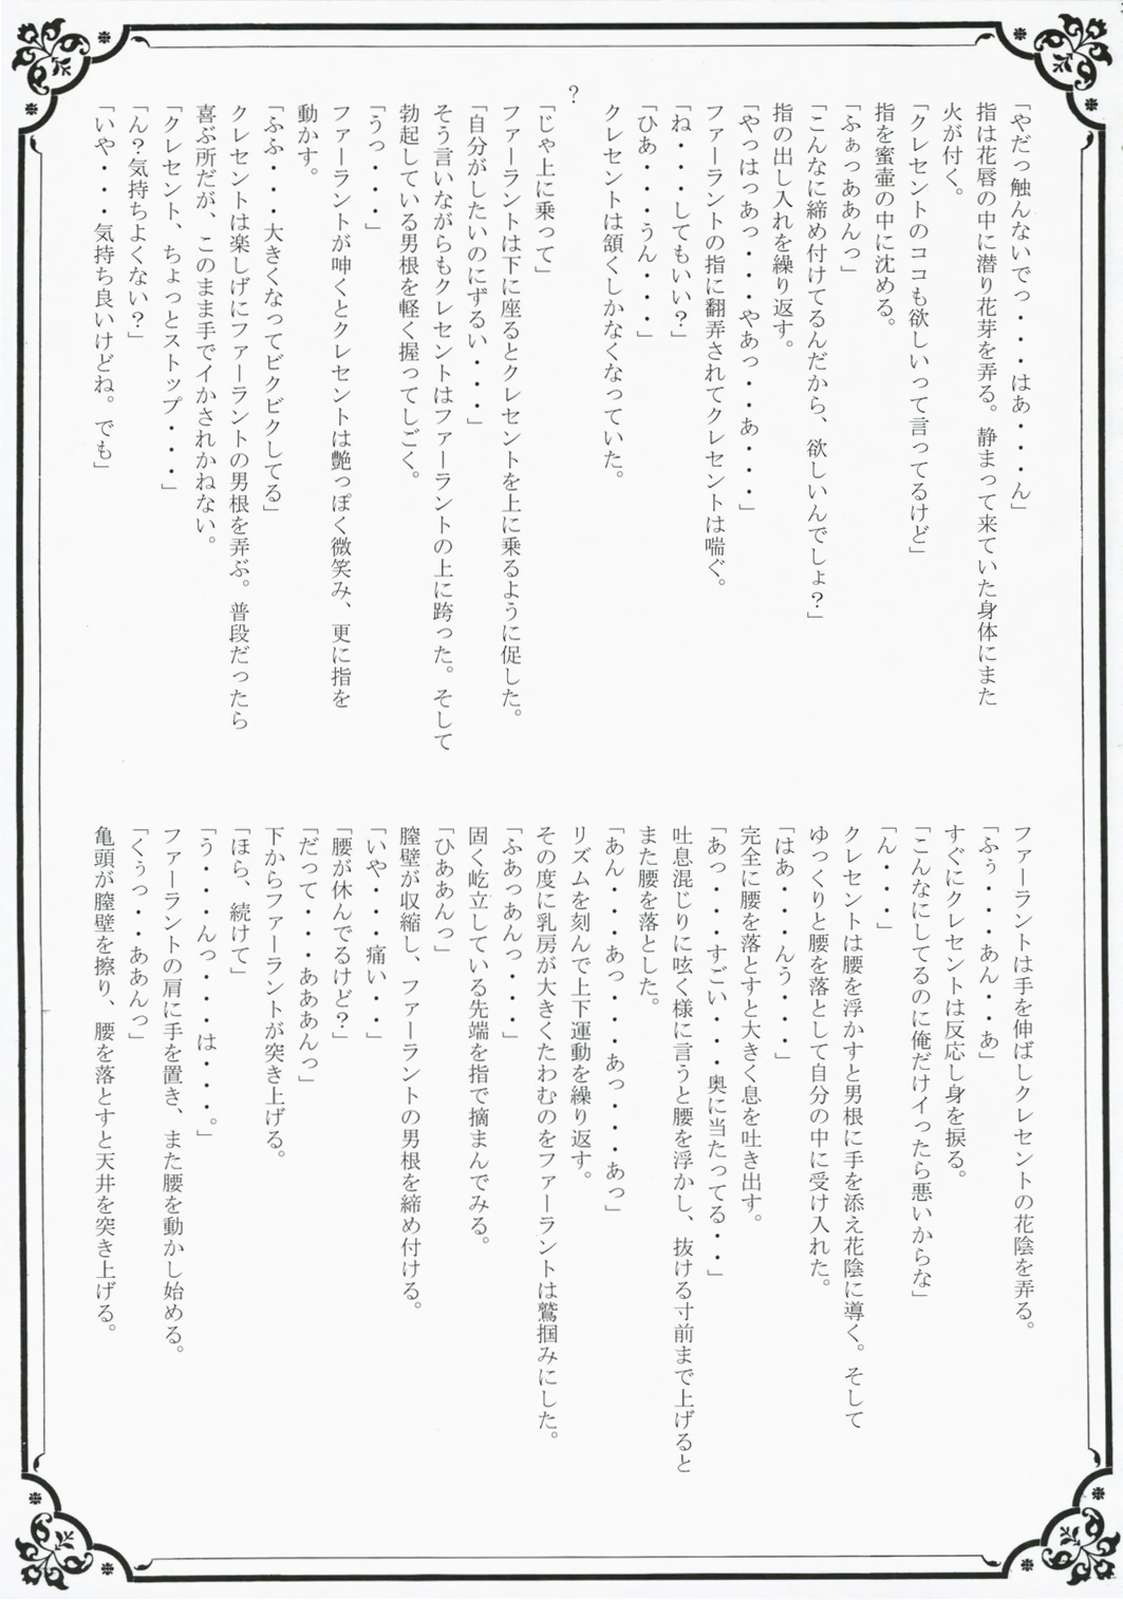 「やだっ触んないでっ・・・はあ・・・ん」
指は花唇の中に潜り花芽を弄る。静まって来ていた身体にまた
火が付く。
「クレセントのココも欲しいって言ってるけど」
指を蜜壷の中に沈める。
「ふぁっああんっ」
「こんなに締め付けてるんだから、欲しいんでしょ？」
指の出し入れを繰り返す。
「やっはっあっ・・・やあっ・・あ・・・」
ファーラントの指に翻弄されてクレセントは喘ぐ。
「ね・・・してもいい？」
「ひあ・・・うん・・・」
クレセントは頷くしかなくなっていた。
？
「じゃ上に乗って」
ファーラントは下に座るとクレセントを上に乗るように促した。
「自分がしたいのにずるい・・・」
そう言いながらもクレセントはファーラントの上に跨った。そして
勃起している男根を軽く握ってしごく。
「うっ・・・」
ファーラントが呻くとクレセントは艶っぽく微笑み、更に指を
動かす。
「ふふ・・・大きくなってビクビクしてる」
クレセントは楽しげにファーラントの男根を弄ぶ。普段だったら
喜ぶ所だが、このまま手でイかされかねない。
「クレセント、ちょっとストップ・・・」
「ん？気持ちよくない？」
「いや・・・気持ち良いけどね。でも」
ファーラントは手を伸ばしクレセントの花陰を弄る。
「ふぅ・・・あん・・あ」
すぐにクレセントは反応し身を捩る。
「こんなにしてるのに俺だけイったら悪いからな」
「ん・・・」
クレセントは腰を浮かすと男根に手を添え花陰に導く。そして
ゆっくりと腰を落として自分の中に受け入れた。
「はあ・・・んう・・・」
完全に腰を落とすと大きく息を吐き出す。
「あっ・・・すごい・・・奥に当たってる・・」
吐息混じりに呟く様に言うと腰を浮かし、抜ける寸前まで上げると
また腰を落とした。
「あん・・・あっ・・・あっ・・・あっ」
リズムを刻んで上下運動を繰り返す。
その度に乳房が大きくたわむのをファーラントは鷲掴みにした。
「ふあっあんっ・・・」
固く屹立している先端を指で摘まんでみる。
「ひああんっ」
膣壁が収縮し、ファーラントの男根を締め付ける。
「いや・・・痛い・・」
「腰が休んでるけど？」
「だって・・・あああんっ」
下からファーラントが突き上げる。
「ほら、続けて」
「う・・・んっ・・・は・・・。」
ファーラントの肩に手を置き、また腰を動かし始める。
「くぅっ・・ああんっ」
亀頭が膣壁を擦り、腰を落とすと天井を突き上げる。